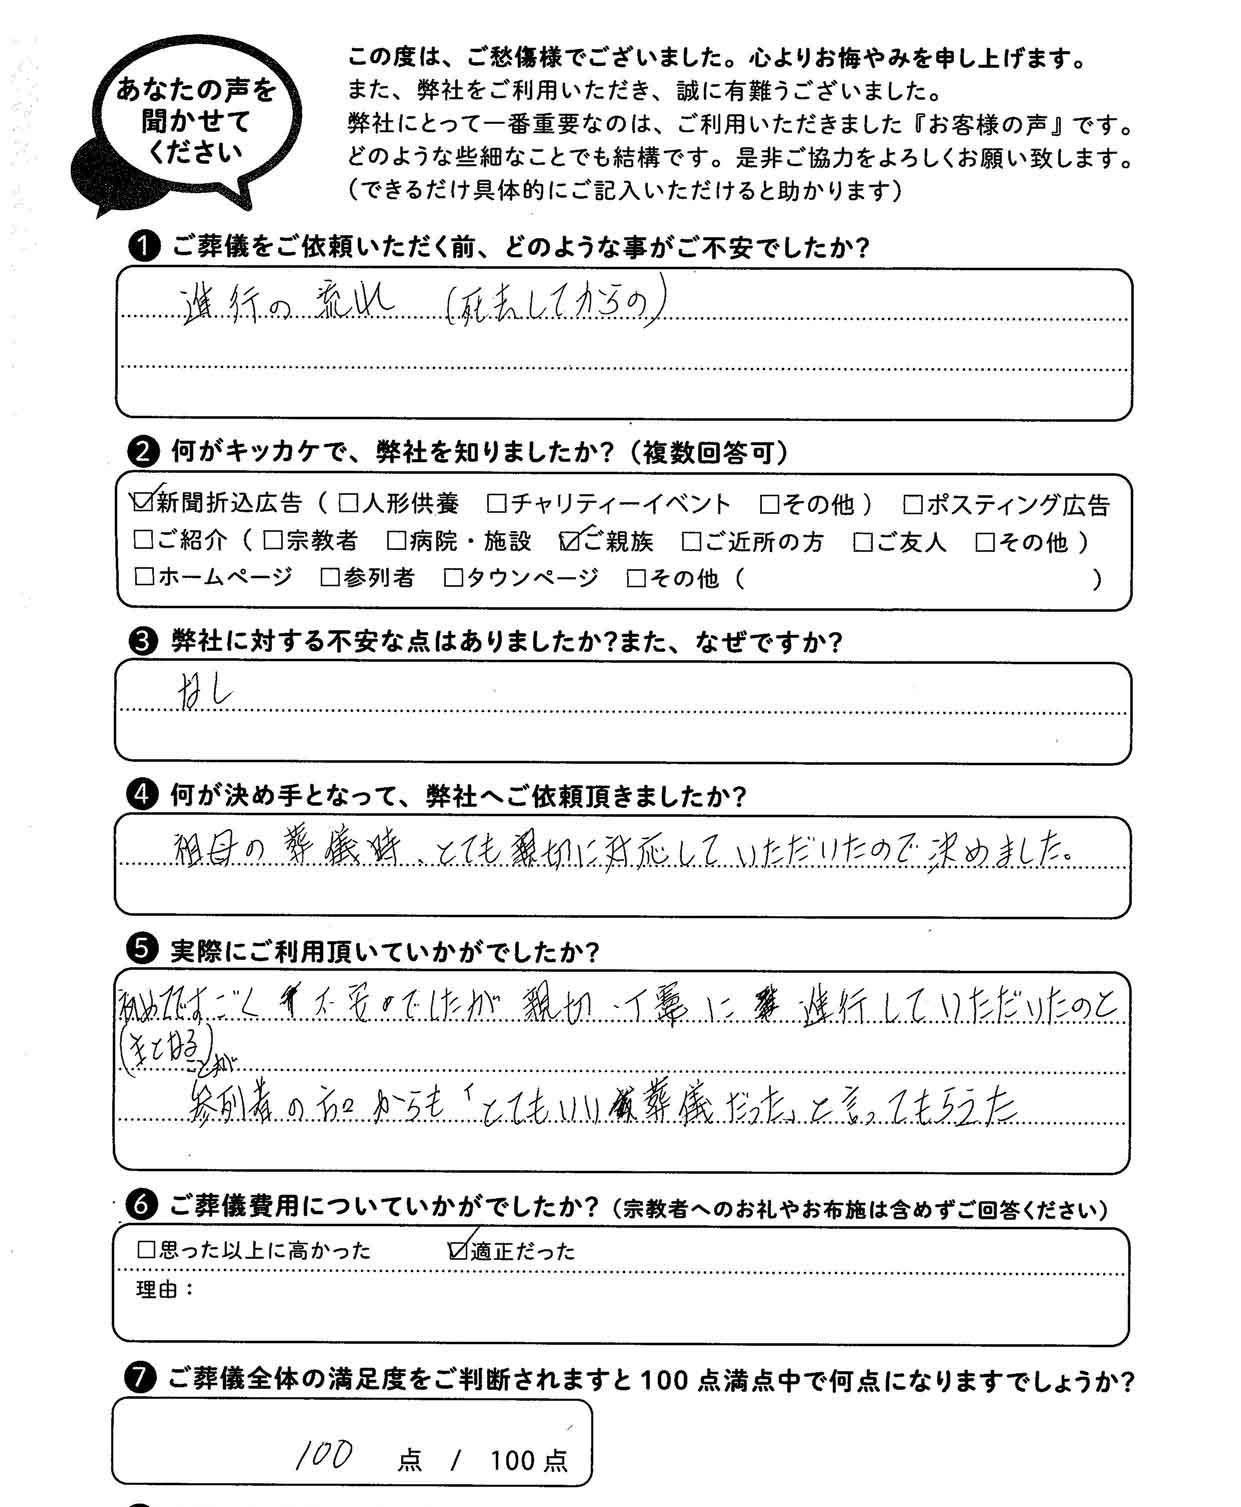 あなたの声を
聞かせて
ください
この度は、ご愁傷様でございました。心よりお悔やみを申し上げます。
また、弊社をご利用いただき、誠に有難うございました。
弊社にとって一番重要なのは、ご利用いただきました『お客様の声』です。
どのような些細なことでも結構です。是非ご協力をよろしくお願い致します。
（できるだけ具体的にご記入いただけると助かります）
❶ ご葬儀をご依頼いただく前、どのような事がご不安でしたか？
進行の流れ （死去してからの）
❷ 何がキッカケで、弊社を知りましたか？（複数回答可）
☑新聞折込広告（ □人形供養 □チャリティーイベント □その他 ） □ポスティング広告
□ご紹介（ □宗教者 □病院・施設 ☑ご親族 □ご近所の方 □ご友人 □その他 ）
□ホームページ □参列者 □タウンページ □その他（ ）
❸ 弊社に対する不安な点はありましたか？また、なぜですか？
なし
❹ 何が決め手となって、弊社へご依頼頂きましたか？
祖母の葬儀時、とても親切に対応していただいたので決めました。
❺ 実際にご利用頂いていかがでしたか？
初めてですごく不安でしたが親切、丁寧に進行していただいたのと
ことが
参列者の方々からも「とてもいい葬儀だった」と言ってもらえた
❻ ご葬儀費用についていかがでしたか？（宗教者へのお礼やお布施は含めずご回答ください）
□思った以上に高かった ☑適正だった
理由：
❼ ご葬儀全体の満足度をご判断されますと100点満点中で何点になりますでしょうか？
100 点 / 100点